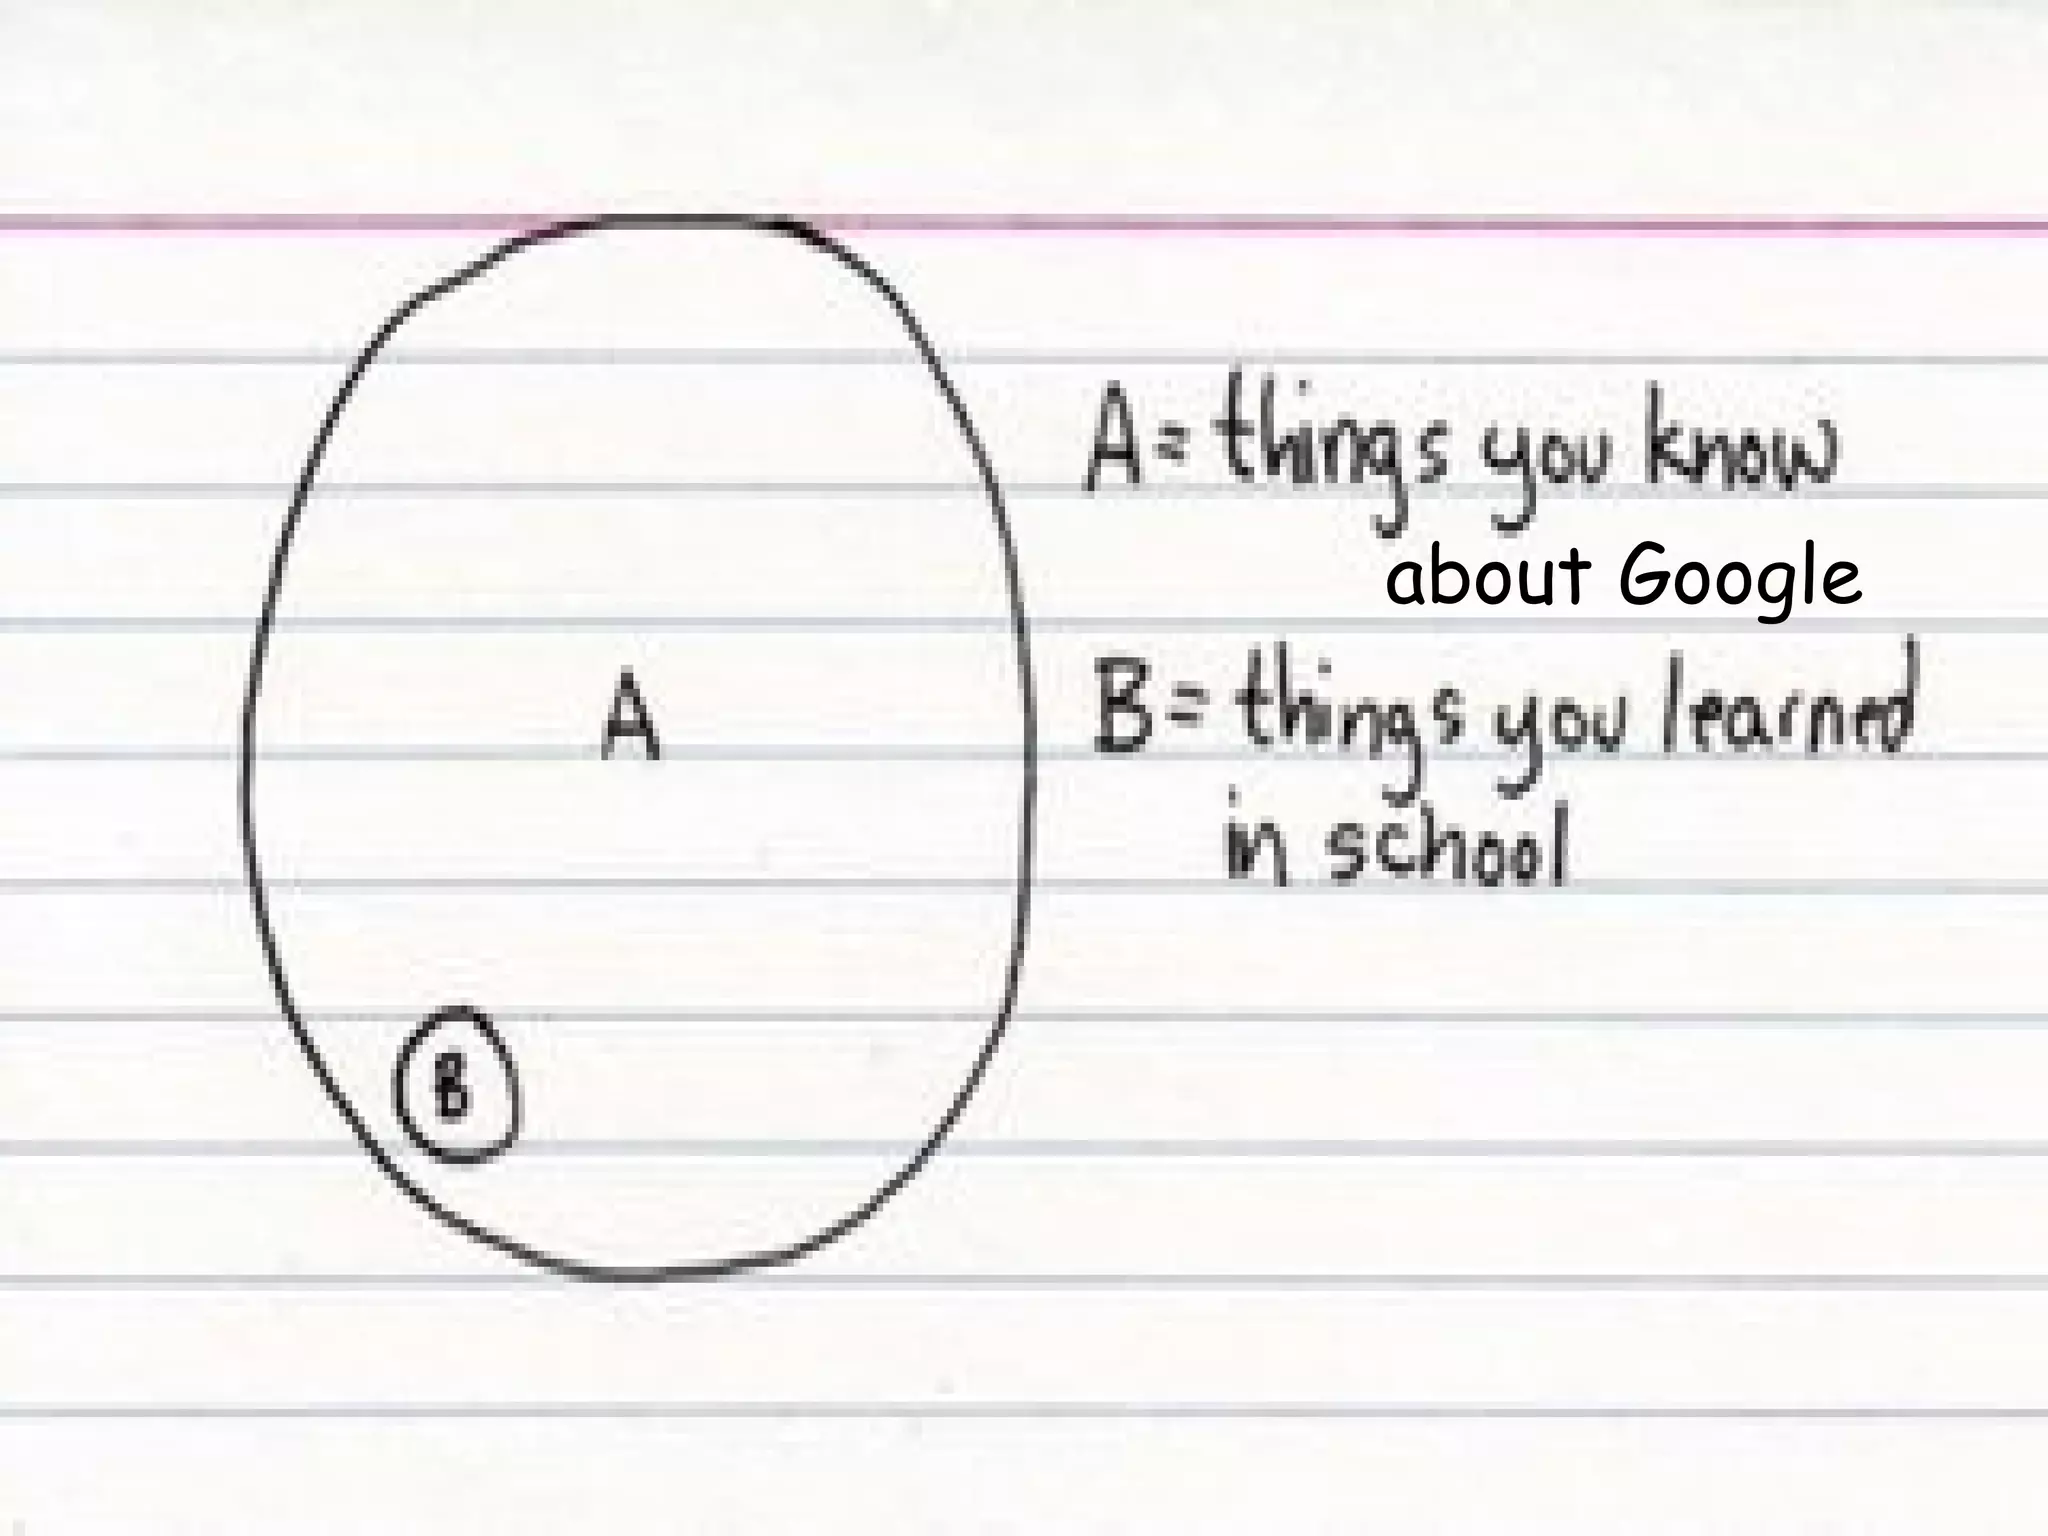 A= things you know
about Google
A
B= things you learned
in school
B